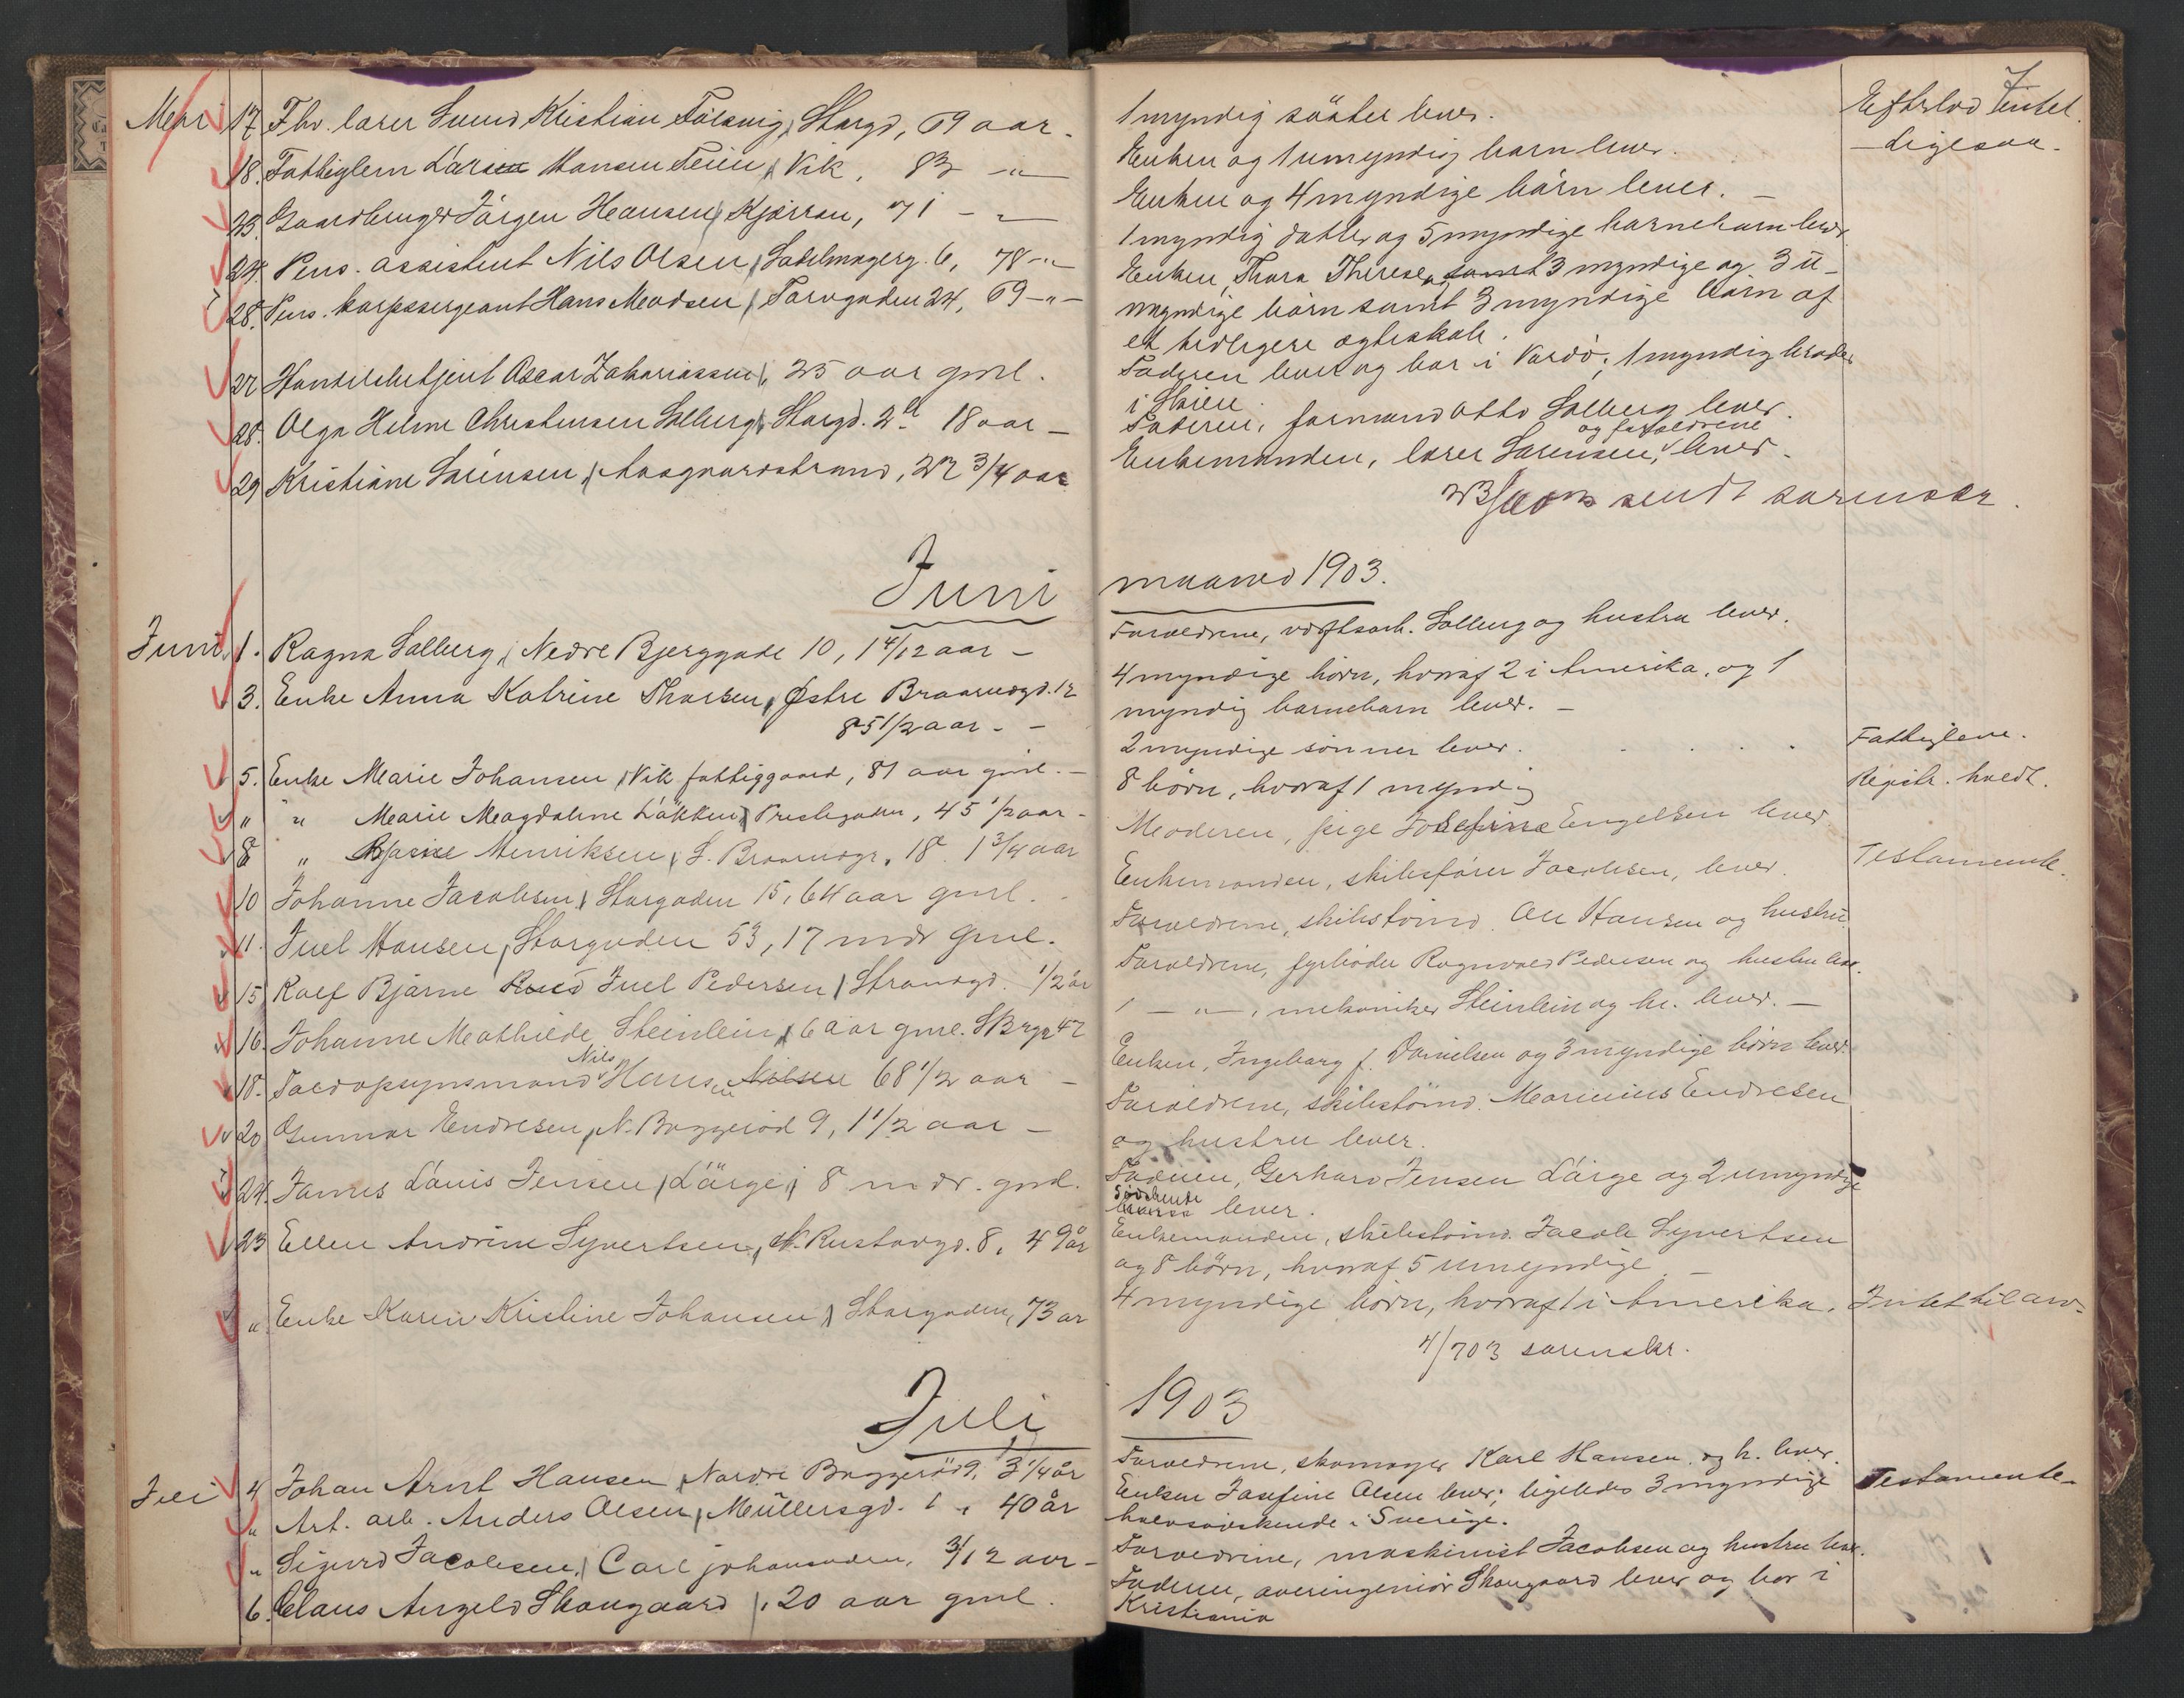 Mai 17. Fhv. lærer Svend Kristian Storgd, 69 aar.
18. Fattiglem Hansen Teien, Vik, 83 -"-
23. Gaardbruger Jörgen Hansen, Kjærran, 71 - "-
24. Pens. assistent Nils Olsen, Sadelmagerg. 6, 78 -"-
28. Pens. korpssergeant Hans Madsen, Torvgaden 24, 69 -"-
27 Handelsbetjent Oscar Zakariassen, 25 aar gml.
28. Olga Helene Christensen Solberg, Storgd. 2 18 aar -
29 Kristiane Sörensen, Aasgaardstrand, 27 3/4 aar
Juni
Juni 1. Ragna Solberg, Nedre Bjerggade 10, 1 4/12 aar -
3. Enke Anna Katrine Thorsen, Østre Braarudgd. 12
85 1/2 aar. -
5. Enke Marie Johansen, Vik fattiggaard, 81 aar gml. -
" " Marie Magdalene Løkken, Prestegaden, 45 1/2 aar -
8 " Henriksen, S. Braarudgr. 18. 1 3/4 aar
10 Johanne Jacobsen, Storgaden 15, 64 aar gml.
11. Juel Hansen, Storgaden 53, 17 mdr gml.
15 Rolf Bjarne Juel Pedersen, Strandgd. 1/2 år
16. Johanne Mathilde Steinlein, 6 aar gml. 47
Nils
18. Hans Nilsen 68 1/2 aar -
20 Gunnar Endresen, N. Baggerød 9, 1 1/2 aar -
24. James Louis Jensen, 8 mdr. gml.
23 Ellen Andrine Syvertsen, N. Rustadgd. 8, 49 år
" Enke Karen Kristine Johansen, Storgaden, 73 ar
Juli
Juli 4 Johan Arnt Hansen, Nordre Baggerød 9, 3 1/4 år
" Arb. Anders Olsen, Müllersgd. 1, 40 år
" Sigurd Jacobsen, Carl johansaden, 3/12 aar -
6. Claus Angeld Skougaard, 20 aar gml.
1 myndig söster lever.
Enken og 1 umyndig barn lever.
Enken og 4 myndige börn lever. -
1 myndig datter og 5 myndige barnebarn lever
Enken, Thora Therese, og samt 3 myndige og 3 u-
myndige börn samt 3 myndige börn af
et tidligere ægteskab.
Faderen lever og bor i Vardö; 1 myndig broder
i Skien.
Faderen, formand Otto Solberg lever.
og forældrene
Enkemanden, lærer Sörensen, lever.
sendt sorenskr.
maaned 1903.
Forældrene, Solberg og hustru lever.
4 myndige börn, hvoraf 2 i Amerika, og 1
myndig barnebarn lever. -
2 myndige sönner lever.
8 börn, hvoraf 1 myndig
Moderen, pige Josefine Engelsen lever
Enkemanden, skibsförer Jacobsen, lever.
Forældrene, skibstömd. Ole Hansen og hustru.
Forældrene, fyrböder Ragnvald Pedersen og hustru lever.
- " -, mekaniker Steinlein og h. lever. -
Enken, Ingeborg f. Danielsen og 3 myndige börn lever
Forældrene, skibstömd. Marinius Endresen
og hustru lever.
Faderen, Gerhard Jensen og 2 umyndige
Södskende
lever.
Enkemanden, skibstömd. Jacob Syvertsen
og 8 börn, hvoraf 5 umyndige -
4 myndige börn, hvoraf 1 i Amerika.
4/7 03 sorenskr.
1903
Forældrene, skomager Karl Hansen og h. lever.
Enken Josefine Olsen lever; ligeledes 3 myndige
halvsödskende i Sverige.
Forældrene, maskinist Jacobsen og hustru lever.
Faderen, overingeniör Skougaard lever og bor i
Kristiania
7
Efterlod Intet.
- ligesaa.
Fattiglem.
Registr. holdt.
Testamente.
Intet til arv.
Testamente